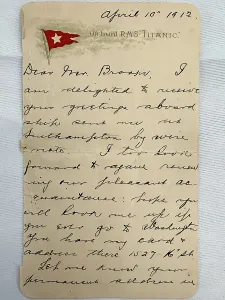 April 10th 1912.
On board R.M.S. "TITANIC."
Dear Mrs. Brooks, I
am delighted to receive
your greetings aboard
ship sent me at
Southampton by wire
note. I too look
forward to again renew
ing our pleasant ac
quaintance: hope you
will look me up if
you ever go to Washington
You have my card &
address there 1527 16th St
Let me know your
permanent address in